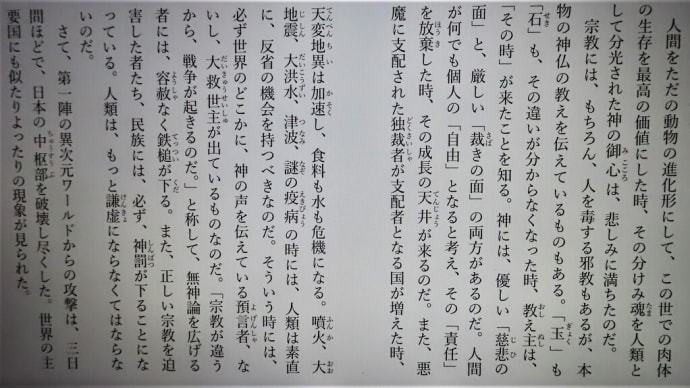 人間をただの動物の進化形にして、この世での肉体
の生存を最高の価値にした時、その分けみ魂を人類と
して分光された神の御心は、悲しみに満ちたのだ。
宗教には、もちろん、人を毒する邪教もあるが、本
物の神仏の教えを伝えているものもある。「玉」も
「石」も、その違いが分からなくなった時、教え主は、
「その時」が来たことを知る。神には、優しい「慈悲の
面」と、厳しい「裁きの面」の両方があるのだ。人間
が何でも個人の「自由」となると考え、その「責任」
を放棄した時、その成長の天井が来るのだ。また、悪
魔に支配された独裁者が支配者となる国が増えた時、
天変地異は加速し、食料も水も危機になる。噴火、大
地震、大洪水、津波、謎の疫病の時には、人類は素直
に、反省の機会を持つべきなのだ。そういう時には、
必ず世界のどこかに、神の声を伝えている預言者、な
いし、大救世主が出ているものなのだ。「宗教が違う
から、戦争が起きるのだ。」と称して、無神論を広げる
者には、容赦なく鉄槌が下る。また、正しい宗教を迫
害した者たち、民族には、必ず、神罰が下ることにな
っている。人類は、もっと謙虚にならなくてはならな
いのだ。
さて、第一陣の異次元ワールドからの攻撃は、三日
間ほどで、日本の中枢部を破壊し尽くした。世界の主
要国にも似たりよったりの現象が見られた。